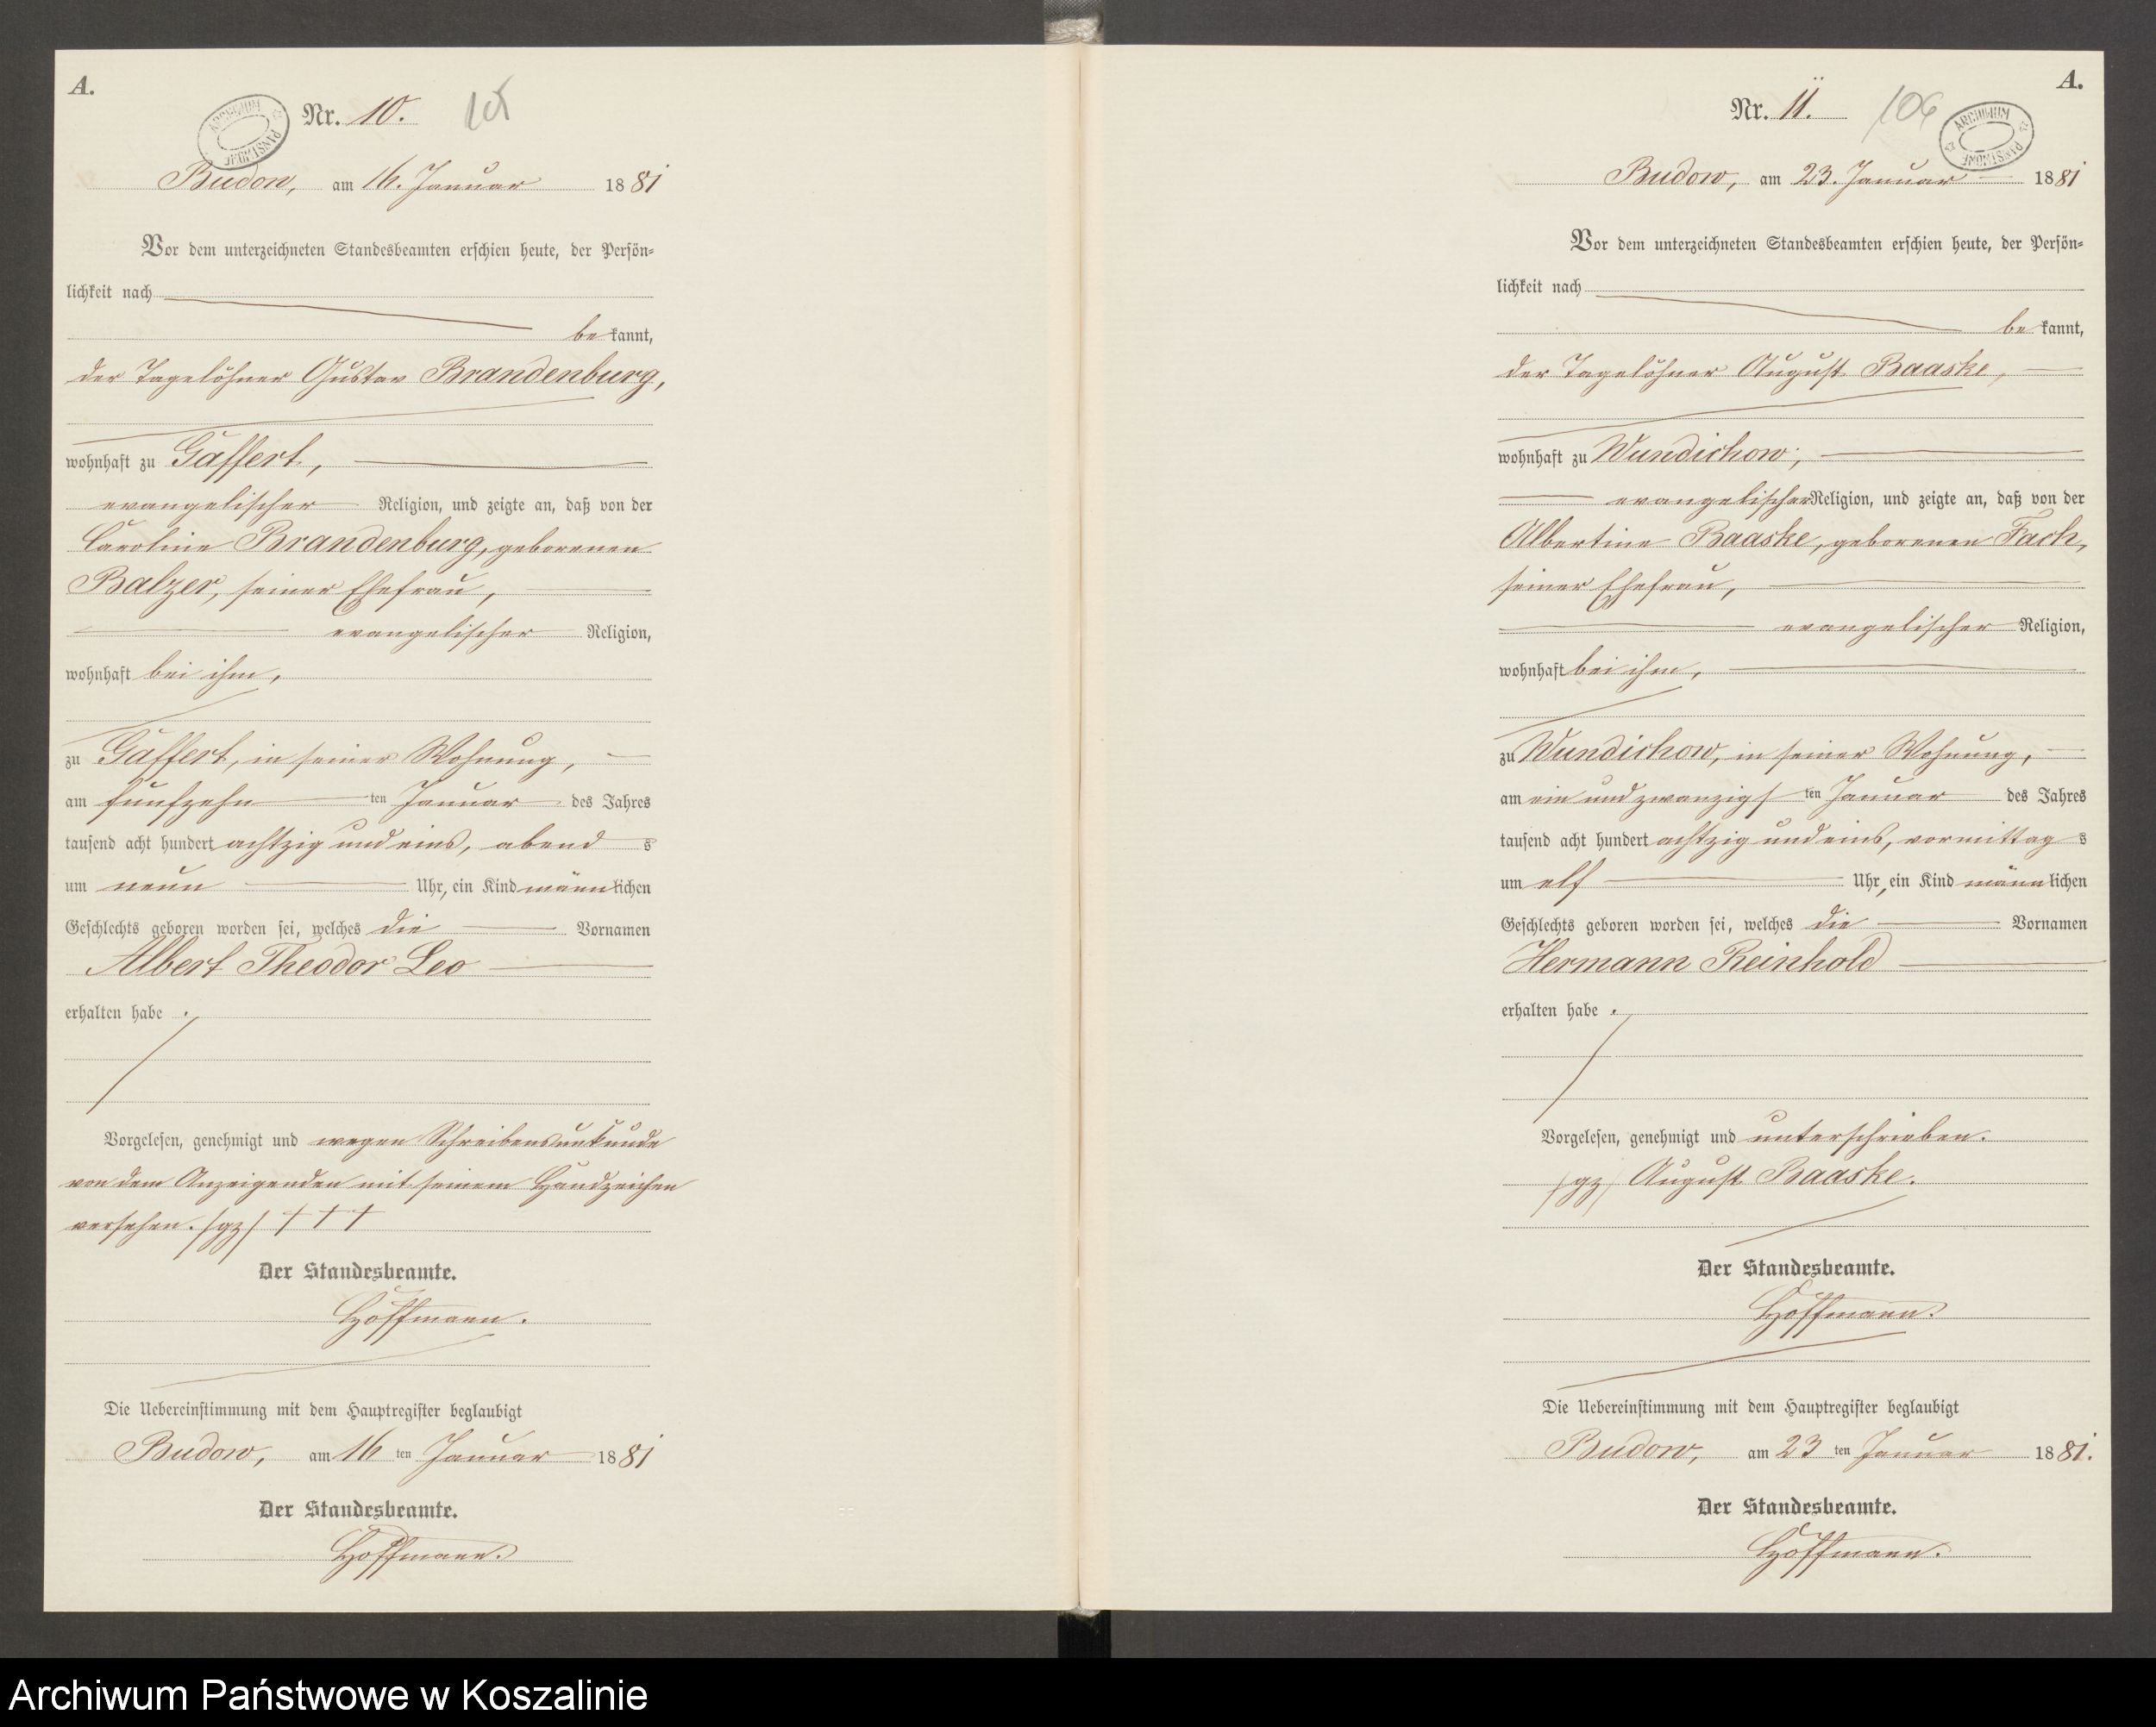 A.
Nr. 10.
ARCHIWUM PAŃSTWOWE
Budow, am 16. Januar 1881
Vor dem unterzeichneten Standesbeamten erschien heute, der Persön=
lichkeit nach
be kannt,
der Tagelöhner Gustav Brandenburg,
wohnhaft zu Gaffert,
evangelischer Religion, und zeigte an, daß von der
Caroline Brandenburg, geborenen
Balzer, seiner Ehefrau,
evangelischer Religion,
wohnhaft bei ihm,
zu Gaffert, in seiner Wohnung,
am fünfzehn ten Januar des Jahres
tausend acht hundert achtzig und eins, abend s
um neun Uhr, ein Kind männlichen
Geschlechts geboren worden sei, welches die Vornamen
Albert Theodor Leo
erhalten habe .
Vorgelesen, genehmigt und wegen Schreibensunkunde
von dem Anzeigenden mit seinem Handzeichen
versehen. /gz/ † † †
Der Standesbeamte.
Hoffmann.
Die Uebereinstimmung mit dem Hauptregister beglaubigt
Budow, am 16 ten Januar 1881
Der Standesbeamte.
Hoffmann.
A.
Nr. 11. 106
ARCHIWUM PAŃSTWOWE
Budow, am 23. Januar 1881
Vor dem unterzeichneten Standesbeamten erschien heute, der Persön=
lichkeit nach
be kannt,
der Tagelöhner August Baaske,
wohnhaft zu Wundichow,
evangelischer Religion, und zeigte an, daß von der
Albertine Baaske, geborenen Fach,
seiner Ehefrau,
evangelischer Religion,
wohnhaft bei ihm,
zu Wundichow, in seiner Wohnung,
am ein und zwanzigs ten Januar des Jahres
tausend acht hundert achtzig und eins, vormittag s
um elf Uhr, ein Kind männlichen
Geschlechts geboren worden sei, welches die Vornamen
Hermann Reinhold
erhalten habe .
Vorgelesen, genehmigt und unterschrieben.
/gz/ August Baaske.
Der Standesbeamte.
Hoffmann.
Die Uebereinstimmung mit dem Hauptregister beglaubigt
Budow, am 23 ten Januar 1881.
Der Standesbeamte.
Hoffmann.
Archiwum Państwowe w Koszalinie